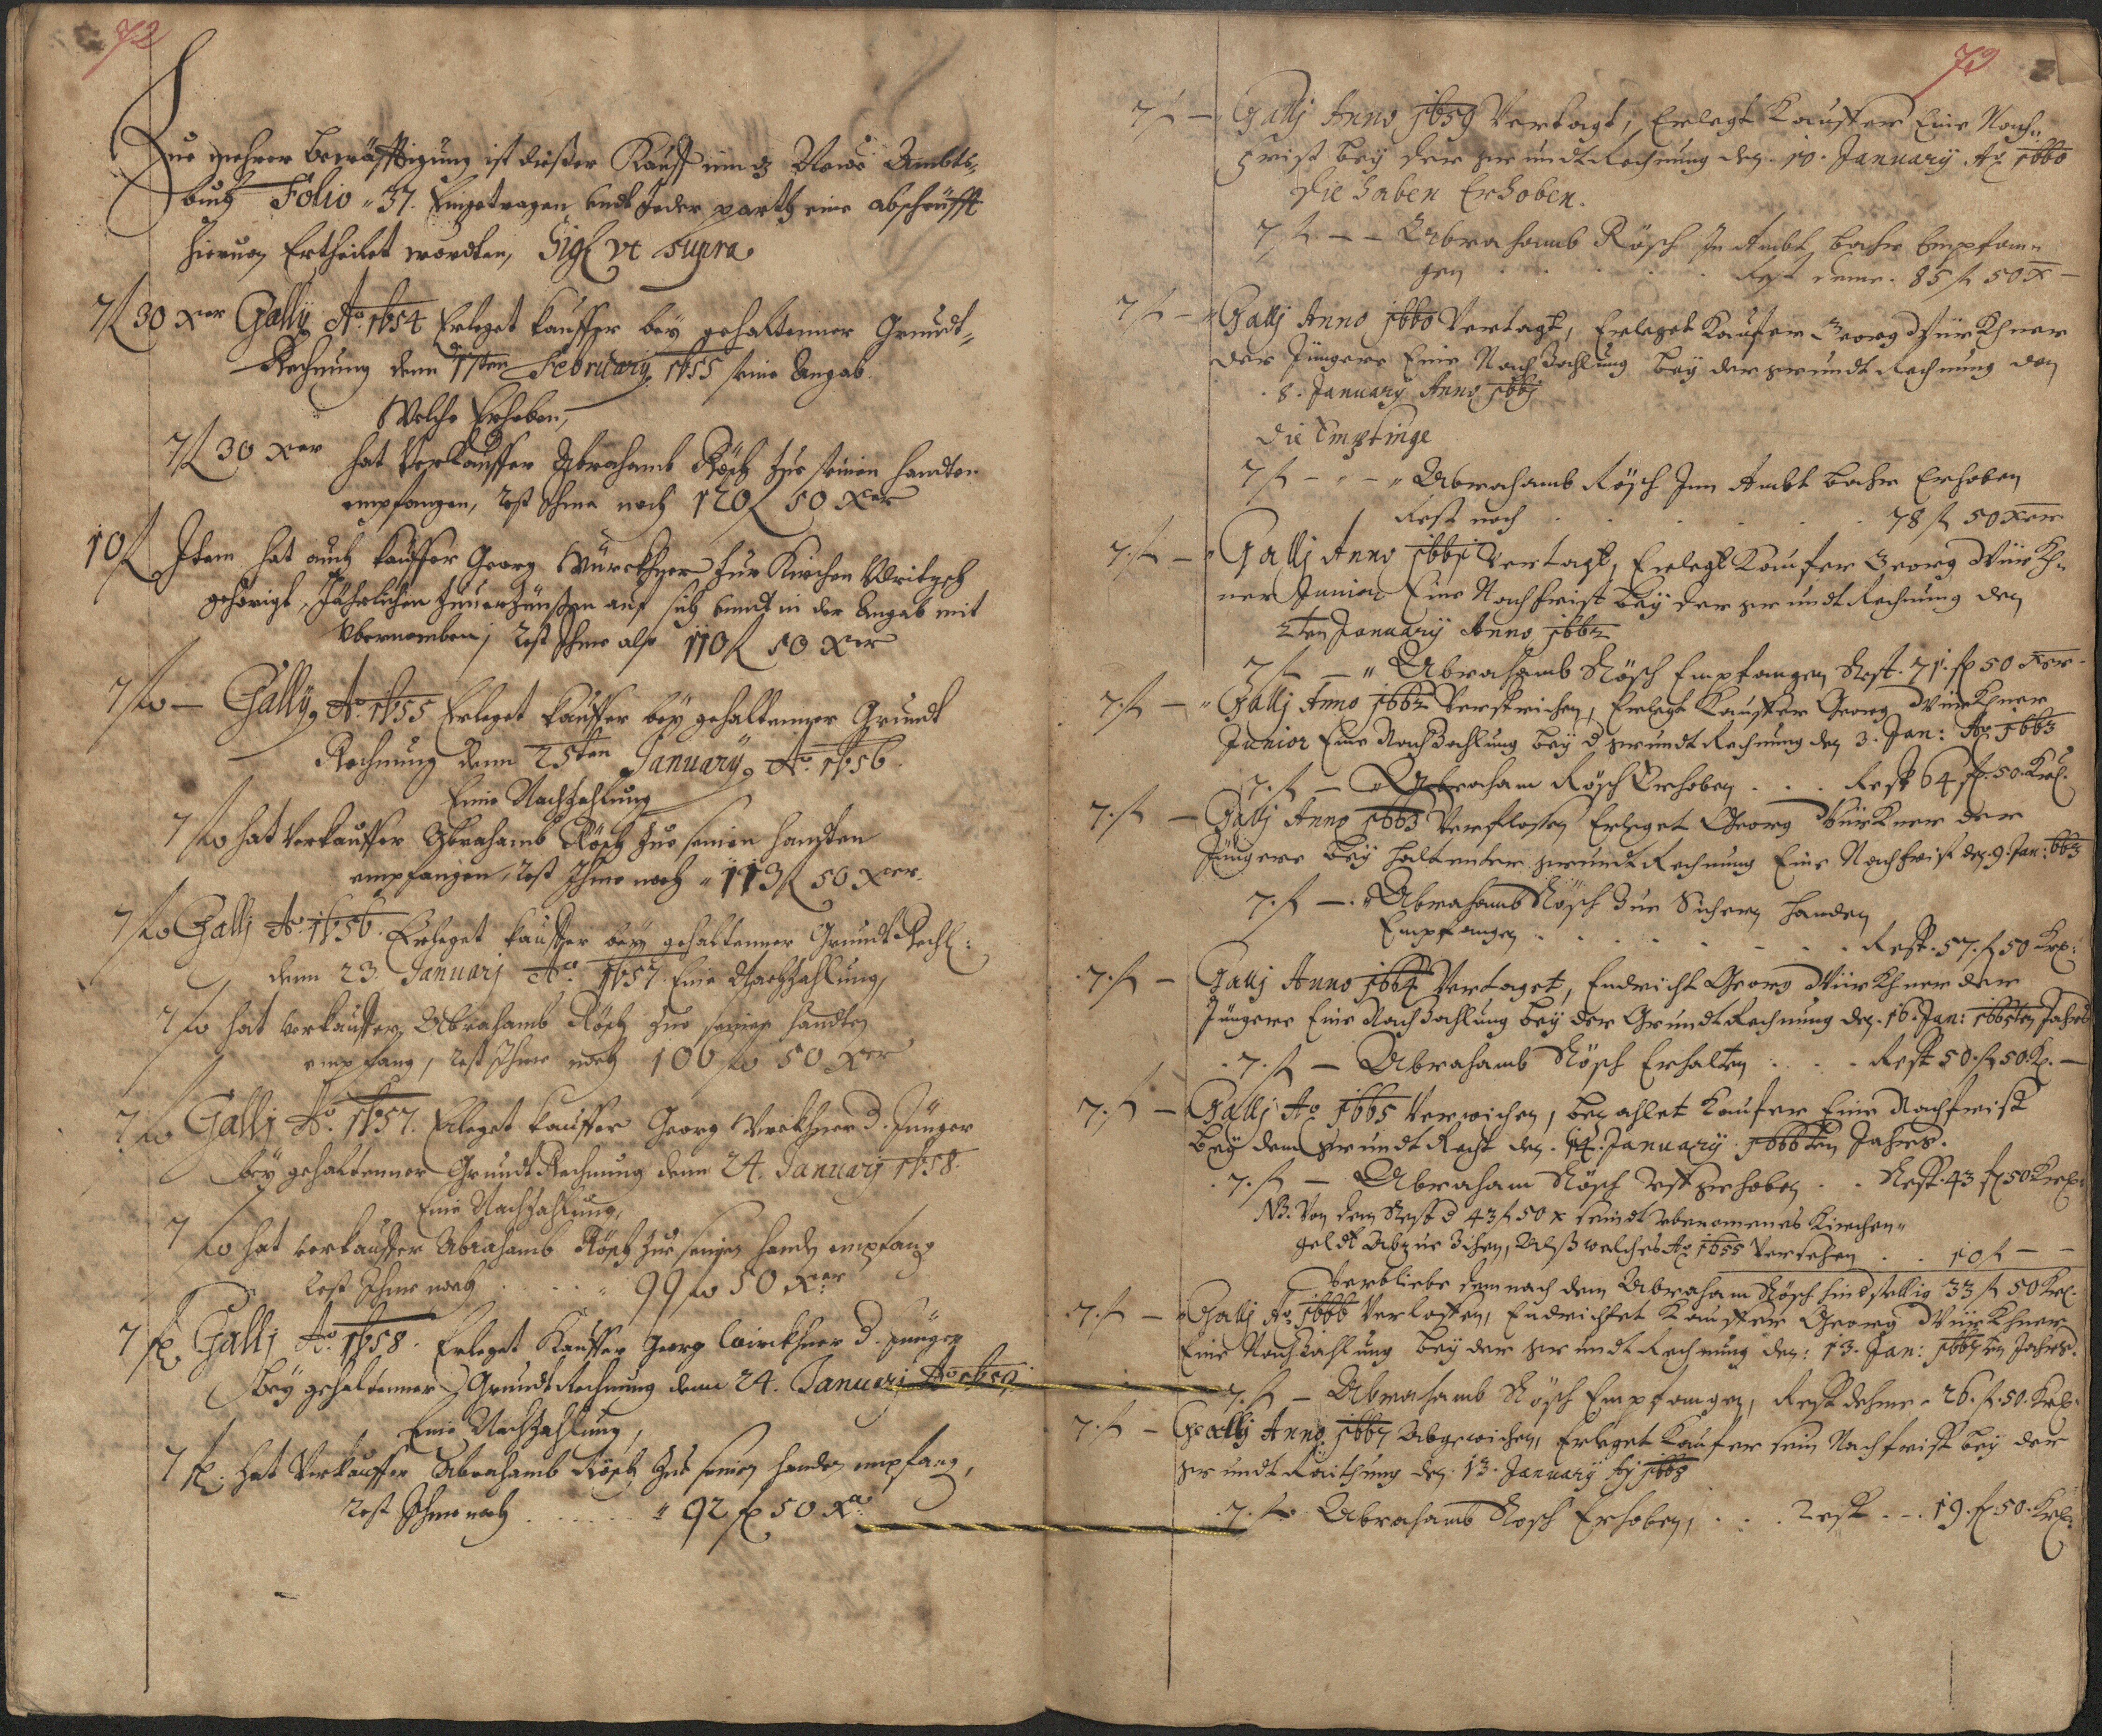 72
Zue mehrer becräfftigung ist dießer Kauff inn d Newe Ambts-
buch Folio 37. Eingetragen undt Jeder parth eine abschrüfft
hieruon Ertheilet wordten, Sigl vt Supra
7 fl 30 xer Gally Ao 1654 Erleget kauffer bey gehaltenner Grundt-
Rechnung denn 17ten February 1655 seine Angab.
Welche Erhoben,
7 fl 30 xer hat Verkauffer Abrahamb Rösch zue seinen handten
empfangen, rest Ihme noch 120 fl 50 xer
10 fl Item hat auch kauffer Georg Würckhner zur Kirchen
gehörigt, Jährlichen auf sich undt in der Angab mit
vbernomben, rest Ihme also 110 fl 50 xer
7 fl — Gally Ao 1655 Erleget kauffer bey gehaltenner Grundt
Rechnung denn 25ten January Ao 1656.
Eine Nachzahlung
7 fl hat Verkauffer Abrahamb Rösch zue seinen handten
empfangen, rest Ihme noch 113 fl 50 xer.
7 fl Gallj Ao 1656. Erleget kauffer bey gehaltenner Grundt Rechl:
denn 23. Januarj Ao 1657 Eine Nachzahlung,
7 fl hat verkauffer Abrahamb Rösch zue seinen handten
empfang, rest Ihme noch 106 fl 50 xer
7 fl Gallj Ao 1657. Erleget kauffer Georg Wirckhner d. Jünger
bey gehaltenner Grundt Rechnung denn 24. Januarj 1658.
Eine Nachzahlung,
7 fl hat verkauffer Abrahamb Rösch zue seinen handen empfang
rest Ihme noch . . . 99 fl 50 xer
7 fl Gallj Ao 1658. Erleget Kauffer Georg Wirckhner d. Jünger
bey gehaltenner Grundt Rechnung denn 24. Januarj Ao 1659
Eine Nachzahlung,
7 fl. hat Verkauffer Abrahamb Rösch zue seinen handen empfang,
rest Ihme noch . . . . . . 92 fl 50 xr.
73
7 fl — Gallj Anno 1659 Vertagt, Erlegt Kauffer Eine Nach-
frist bey der grundt Rechnung den 10. January Ao 1660
Die haben Erhoben.
7 fl — — Abrahamb Rösch Im Ambt Empfan-
gen . . . . . Rest deme. 85 fl 50 x —
7 fl — Gallj Anno 1660 Vertagt, Erleget Kaufer Georg Würkhner
der Jüngere Eine Nach Zahlung bey der grundt Rechnung den
8. January Anno 1661
Die Empfinge
7 fl — — Abrahamb Rösch Inn Ambt Erhoben
Rest noch . . . . . . 78 fl 50 xer
7. fl — Gallj Anno 1661 Vertagt, Erlegt Kaufer Georg Würkh-
ner Junior Eine Nachfrist bey der grundt Rechnung den
2ten January Anno 1662
7 fl — Abrahamb Rösch Empfangen Rest. 71. fl 50 xer.
7. fl — Gallj Anno 1662 Verstrichen, Erlegt Kauffer Georg Würkhner
Junior Eine Nach Zahlung bey d grundt Rechnung den 3. Jan: Ao 1663
7. fl — Abraham Rösch Erhoben . . . Rest 64 fl. 50. Krl.
7. fl — Gallj Anno 1663 Verflossen Erleget Georg Würkner der
Jüngere bey haltenter grundt Rechnung Eine Nachfrist den 9. Jan: 663
7. fl — Abrahamb Rösch Zue Sichern handen
Empfangen . . . . . . . Rest. 57. fl 50 Krl:
7. fl — Gallj Anno 1664 Vertaget, Endricht Georg Würkhner der
Jüngere Eine Nach Zahlung bey der Grundt Rechnung den. 16. Jan: 1665ten Jahrs
7. fl — Abrahamb Rösch Erhalten . . . Rest 50. fl 50 K. —
7. fl — Gallj Ao 1665 Verwichen, bezahlet Kaufer Eine Nachfrist
bey dem grundt Recht den. 14. January. 1666ten Jahrs.
7. fl — Abraham Rösch Erhoben . . Rest. 43 fl 50 Krl:
NB. Von dem Rest d 43 fl 50 x seindt vbernomenes Kirchen-
geldt Abzue Zihen, Alß welches Ao 1655 Versehen . . 10 fl — —
Verbliebe demnach dem Abraham Rösch hindstellig 33 fl 50 Krl.
7. fl — Gallj Ao 1666 Verlossen, Endrichtet Kauffer Georg Würkhner
Eine Nach Zahlung bey der grundt Rechnung den: 13. Jan: 1667ten Jahrs.
7. fl — Abrahamb Rösch Empfangen, Rest dehme. 26. fl. 50. Krl:
7. fl — Gallj Anno 1667 Abgewichen, Erleget Kaufer sein Nachfrist bey der
grundt Raithung den. 13. January 1668
7. fl. Abrahamb Rosch Erhoben, . . . Rest . . 19. fl 50. Krl: